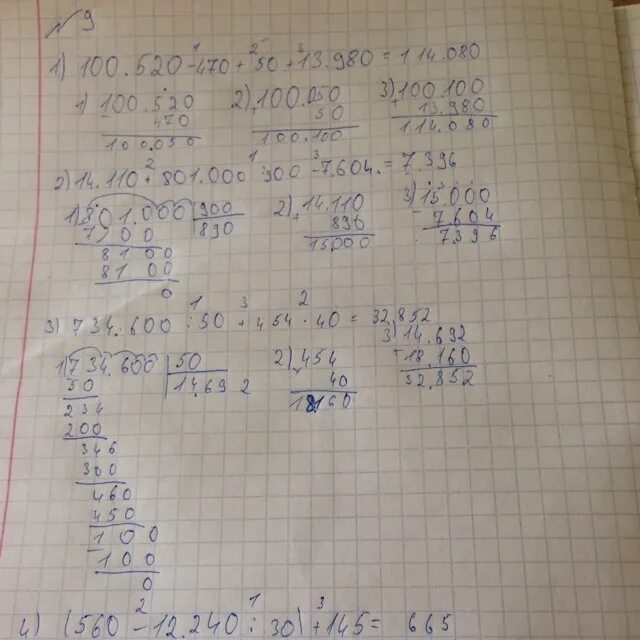 № 9
1) 100.520 - 470 + 50 + 13.980 = 114.080
1) 100.520 2) 100.050 3) 100.100
- 470 + 50 + 13.980
100.050 100.100 114.080
2) 14.110 + 801.000 : 900 - 7.604. = 7.396
1) 801.000 | 900 2) 14.110 3) 15.000
7200 | 890 + 890 - 7604
8100 15.000 7396
8100
0
3) 734.600 : 50 + 454 · 40 = 32.852
1) 734.600 | 50 2) 454 3) 14.692
50 | 14.692 × 40 + 18.160
234 18160 32.852
200
346
300
460
450
100
100
0
4) (560 - 12.240 : 30) + 145 = 665